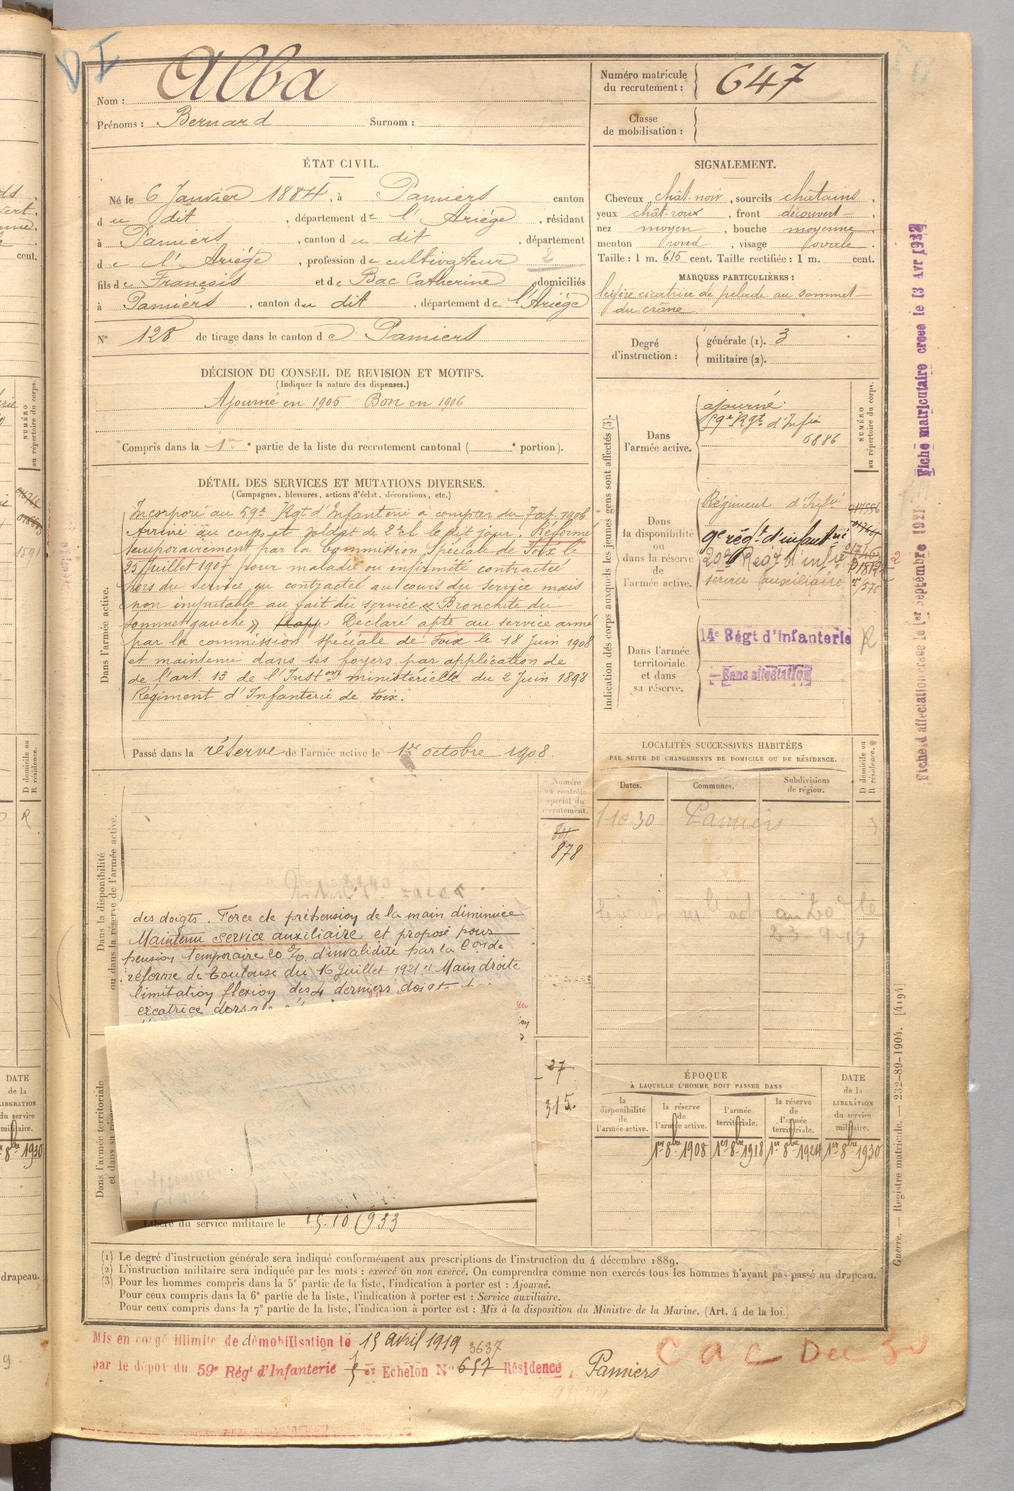 DI
Nom : Alba
Prénoms : Bernard Surnom :
Numéro matricule
du recrutement : 647
Classe
de mobilisation :
ÉTAT CIVIL.
Né le 6 Janvier 1884, à Pamiers canton
du dit, département de l'Ariège, résidant
à Pamiers, canton du dit, département
de l'Ariège, profession de cultivateur
fils de François et de Bac Catherine domiciliés
à Pamiers, canton du dit, département de l'Ariège
N° 128 de tirage dans le canton de Pamiers
SIGNALEMENT.
Cheveux chât. noir, sourcils châtains,
yeux chât. roux, front découvert,
nez moyen, bouche moyenne,
menton rond, visage ovale.
Taille : 1 m. 615 cent. Taille rectifiée : 1 m. cent.
MARQUES PARTICULIÈRES :
légère cicatrice de pelade au sommet
du crâne
Degré
d'instruction :
générale (1). 3
militaire (2).
DÉCISION DU CONSEIL DE REVISION ET MOTIFS.
(Indiquer la nature des dispenses.)
Ajourné en 1905 Bon en 1906
Compris dans la 1re partie de la liste du recrutement cantonal ( e portion).
DÉTAIL DES SERVICES ET MUTATIONS DIVERSES.
(Campagnes, blessures, actions d'éclat, décorations, etc.)
Dans l'armée active.
Incorporé au 59e Régt d'Infanterie à compter du 7 8bre 1906
Arrivé au corps et soldat de 2e cl. le dit jour. Réformé
temporairement par la Commission Spéciale de Foix le
25 Juillet 1907 pour maladie ou infirmité contractée
hors du service ou contractée au cours du service mais
non imputable au fait du service « Bronchite du
sommet gauche » Déclaré apte au service armé
par la commission spéciale de Foix le 18 Juin 1908
et maintenu dans ses foyers par application de
de l'art. 13 de l'Inston ministérielle du 2 Juin 1898
Régiment d'Infanterie de Foix.
Passé dans la réserve de l'armée active le 1er octobre 1908.
Indication des corps auxquels les jeunes gens sont affectés (3).
NUMÉRO
au répertoire du corps.
Dans
l'armée active.
ajourné.
59e Régt d'Infie
6886
Dans
la disponibilité
ou
dans la réserve
de
l'armée active.
Régiment d'Infie
9e régt d'infanterie
209e Régt d'infie
service auxiliaire
Dans l'armée
territoriale
et dans
sa réserve.
14e Régt d'Infanterie R
Sans affectation
LOCALITÉS SUCCESSIVES HABITÉES
PAR SUITE DE CHANGEMENTS DE DOMICILE OU DE RÉSIDENCE.
Dates. Communes. Subdivisions
de région.
D domicile ou
R résidence.
1-10 30 Pamiers
23-9-19
Dans la disponibilité
ou dans la réserve de l'armée active.
Numéro
au contrôle
spécial du
recrutement.
878
des doigts. Force de préhension de la main diminuée
Maintenu service auxiliaire et proposé pour
pension temporaire 20 % d'invalidité par la Con de
réforme de Toulouse du 16 Juillet 1921 « Main droite
limitation flexion des 4 derniers doigts
27
315.
Dans l'armée territoriale
ÉPOQUE
À LAQUELLE L'HOMME DOIT PASSER DANS
la
disponibilité
de
l'armée active.
la réserve
de
l'armée active.
l'armée
territoriale.
la réserve
de
l'armée
territoriale.
DATE
de la
LIBÉRATION
du service
militaire.
1er 8bre 1908 1er 8bre 1918 1er 8bre 1924 1er 8bre 1930
Libéré du service militaire le 15.10 1933
(1) Le degré d'instruction générale sera indiqué conformément aux prescriptions de l'instruction du 4 décembre 1889.
(2) L'instruction militaire sera indiquée par les mots : exercé ou non exercé. On comprendra comme non exercés tous les hommes n'ayant pas passé au drapeau.
(3) Pour les hommes compris dans la 5e partie de la liste, l'indication à porter est : Ajourné.
Pour ceux compris dans la 6e partie de la liste, l'indication à porter est : Service auxiliaire.
Pour ceux compris dans la 7e partie de la liste, l'indication à porter est : Mis à la disposition du Ministre de la Marine. (Art. 4 de la loi.)
Mis en congé illimité de démobilisation le 15 avril 1919
3637
par le dépôt du 59e Rég' d'Infanterie er Echelon N° 657 Résidence, Pamiers
C a C Dec 30
Fiche matriculaire créée le 13 Avr 1927
Fiche d'affectation créée le 1er Septembre 1921
Guerre. — Registre matricule. — 232-89-1904. [4194]
cent.
DATE
de la
LIBÉRATION
du service
militaire.
8bre 1930
drapeau.